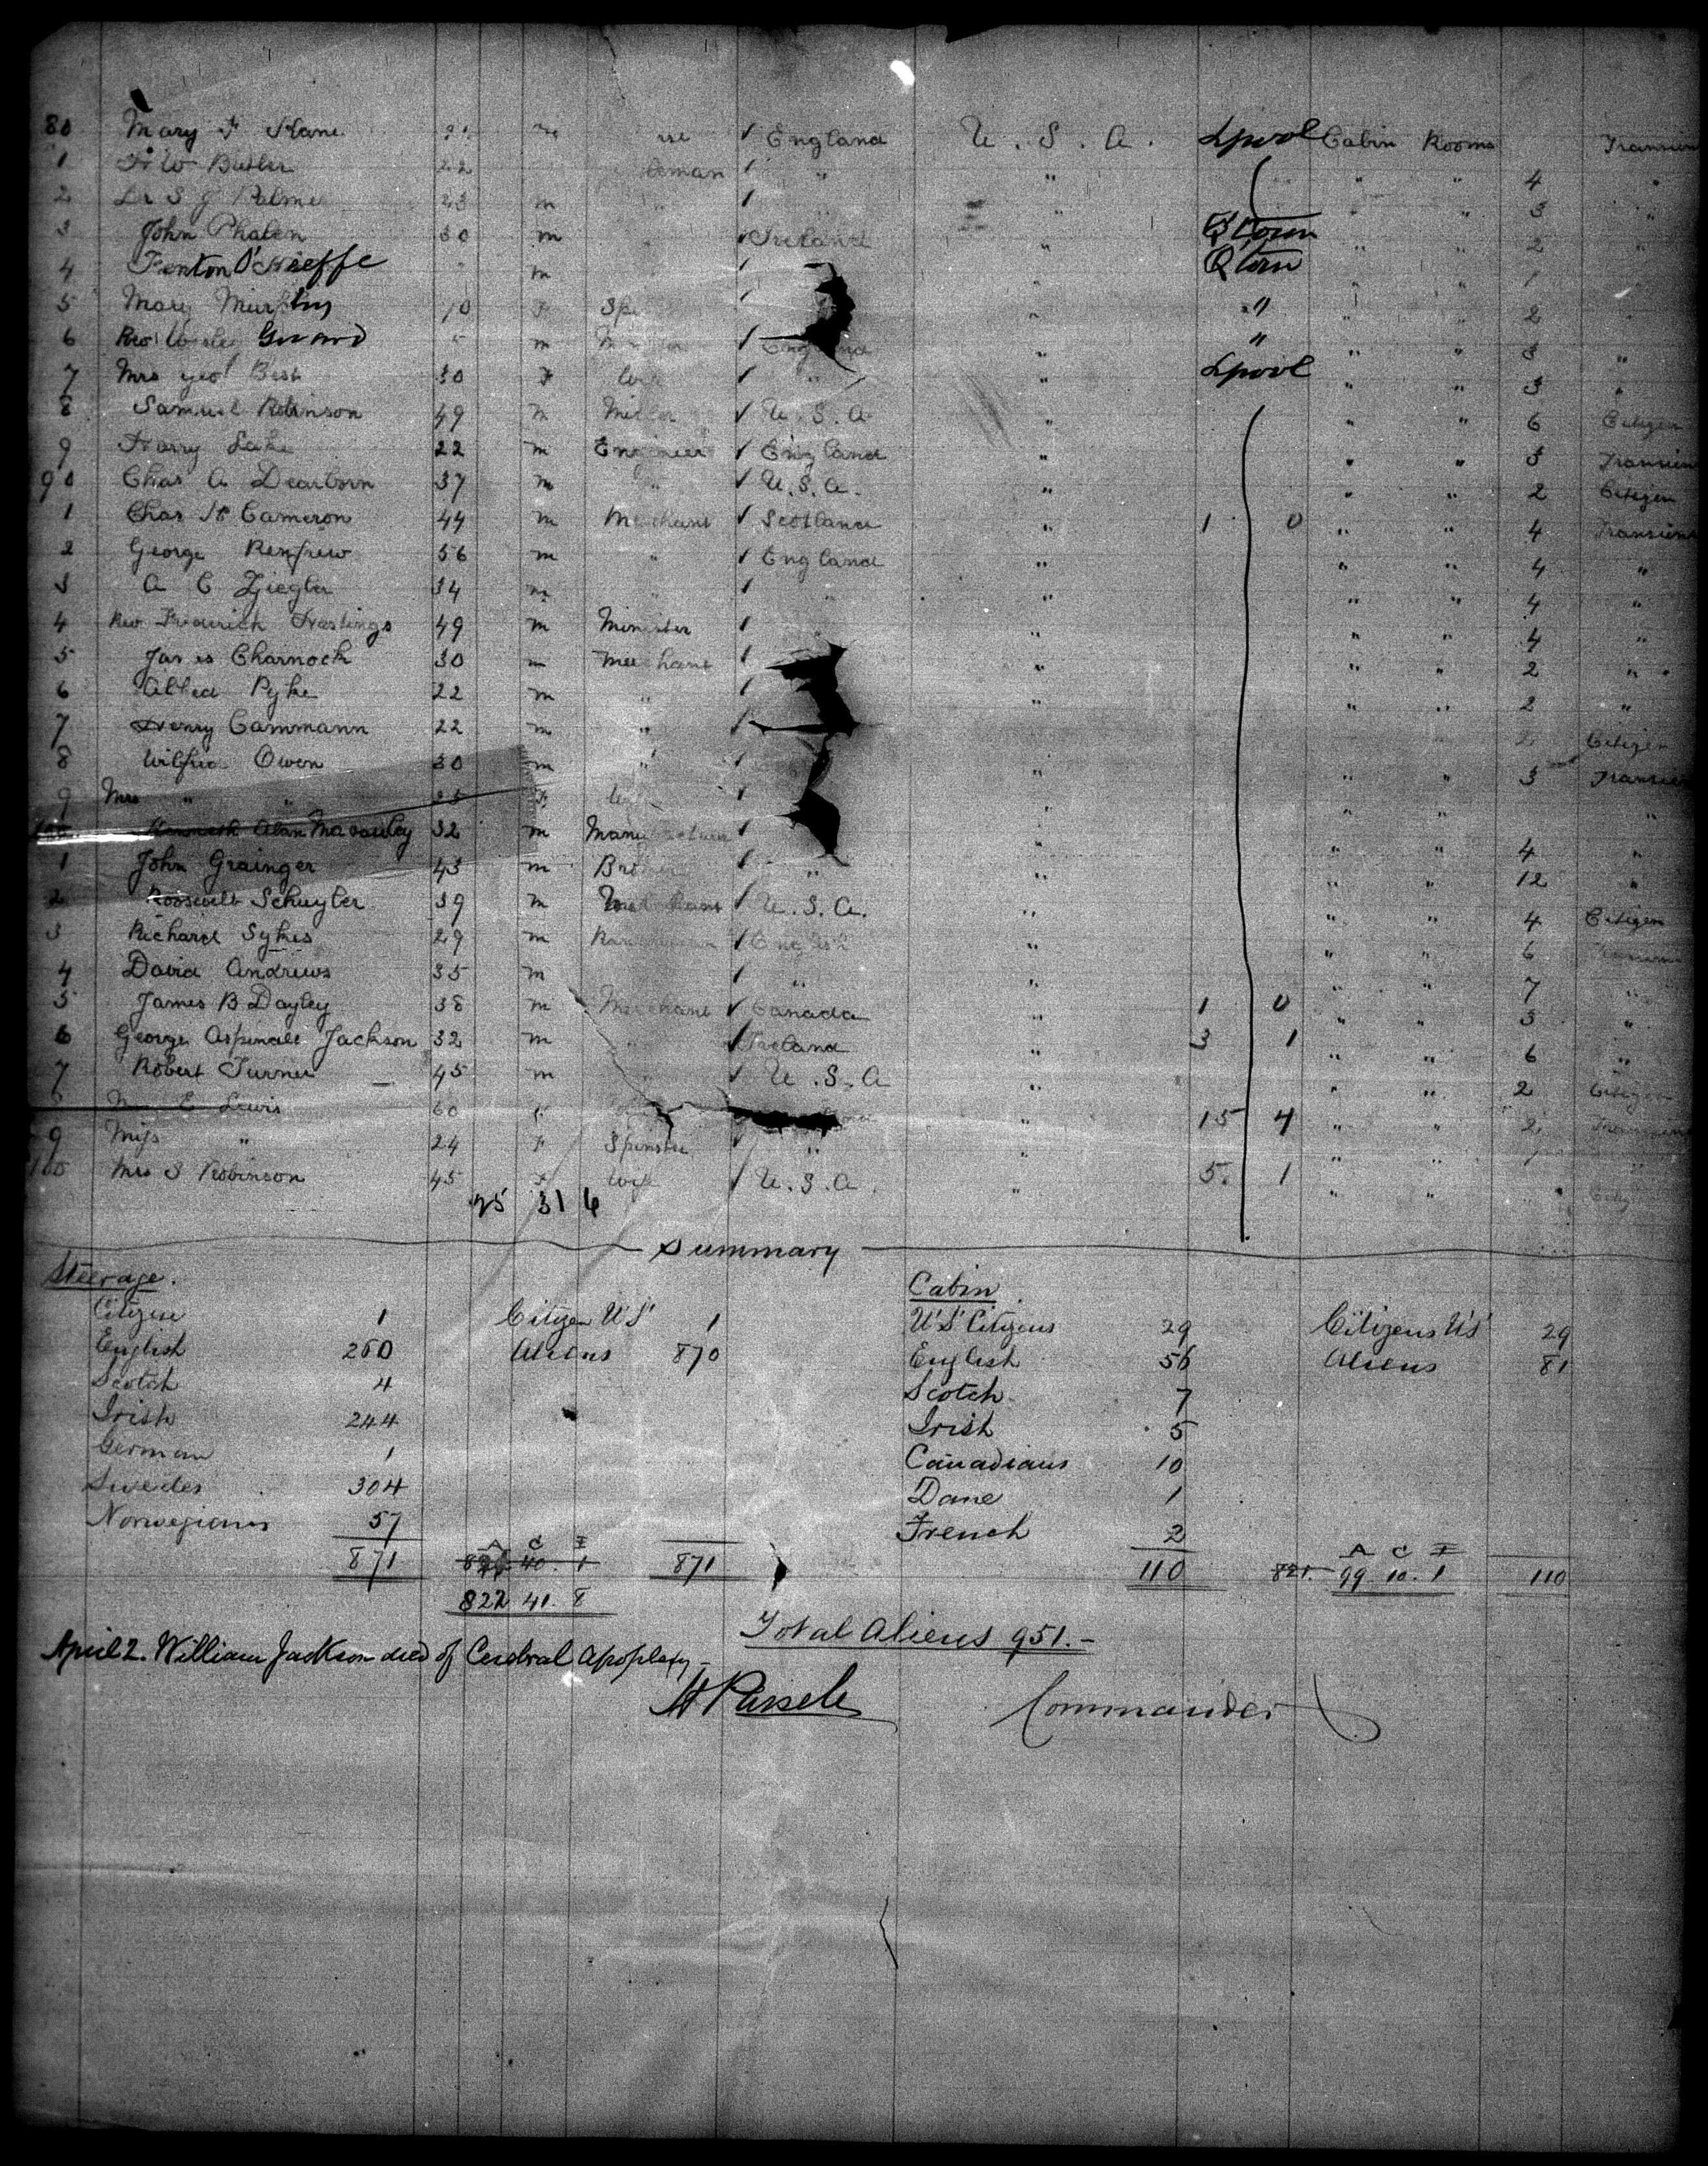 80 Mary F Kane England U. S. A. Lpool Cabin Rooms Transient
1 F W Butler 22 " " " " 4 "
2 S J Palmer 23 m " " " " 3 "
3 John Phalen 30 m " Ireland " Qtown " " 2 "
4 Fenton O'Keeffe " m Qtown " " 1
5 Mary Murphy F Spi " " " " 2
6 Rev m England " " " " 3 "
7 Mrs Geo Best 30 F Wife " " Lpool " " 3 "
8 Samuel Robinson 49 m Miller U. S. A " " " 6 Citizen
9 Harry Lake 22 m Engineer England " " " 3 Transient
90 Chas A Dearborn 37 m " U. S. A. " " " 2 Citizen
1 Chas H Cameron 44 m Merchant Scotland " 1 0 " " 4 Transient
2 George Renfrew 56 m " England " " " 4 "
3 A C Ziegler 34 m " " " " " 4 "
4 Rev Frederick Hastings 49 m Minister " " " " 4 "
5 James Charnock 30 m Merchant " " " 2 "
6 Alfred Pyke 22 m " " " " 2 "
7 Henry Cammann 22 m " Citizen
8 Wilfred Owen 30 m " " " " 3 Transient
9 Mrs " " 25 F Wife " " " "
100 Kenneth Alan Macaulay 32 m Manufacturer " " " 4 "
1 John Grainger 43 m " " " " 12 "
2 Roosevelt Schuyler 39 m Merchant U. S. A. " " " 4 Citizen
3 Richard Sykes 29 m English " " " 6
4 David Andrews 35 m " " " " 7 "
5 James B Dayley 38 m Merchant Canada " 1 0 " " 3 "
6 George Aspinall Jackson 32 m " Ireland " 3 1 " " 6 "
7 Robert Turner 45 m " U. S. A " " " 2 Citizen
8 E Lewis 60 F " 15 4 " " 2
9 Miss " 24 F Spinster " " " "
Mrs S Robinson 45 F Wife U. S. A. " 5 1 " "
25 31 6
Summary
Steerage. Cabin
Citizen 1 Citizen U S 1 U S Citizens 29 Citizens U S 29
English 260 Aliens 870 English 56 Aliens 81
Scotch 4 Scotch 7
Irish 244 Irish 5
German 1 Canadians 10
Swedes 304 Dane 1
Norwegians 57 French 2
A C I A C I
871 40. 1 871 110 821. 99 10. 1 110
822 41. 8
Total Aliens 951.-
April 2. William Jackson died of Cerebral Apoplexy -
H Parsell Commander